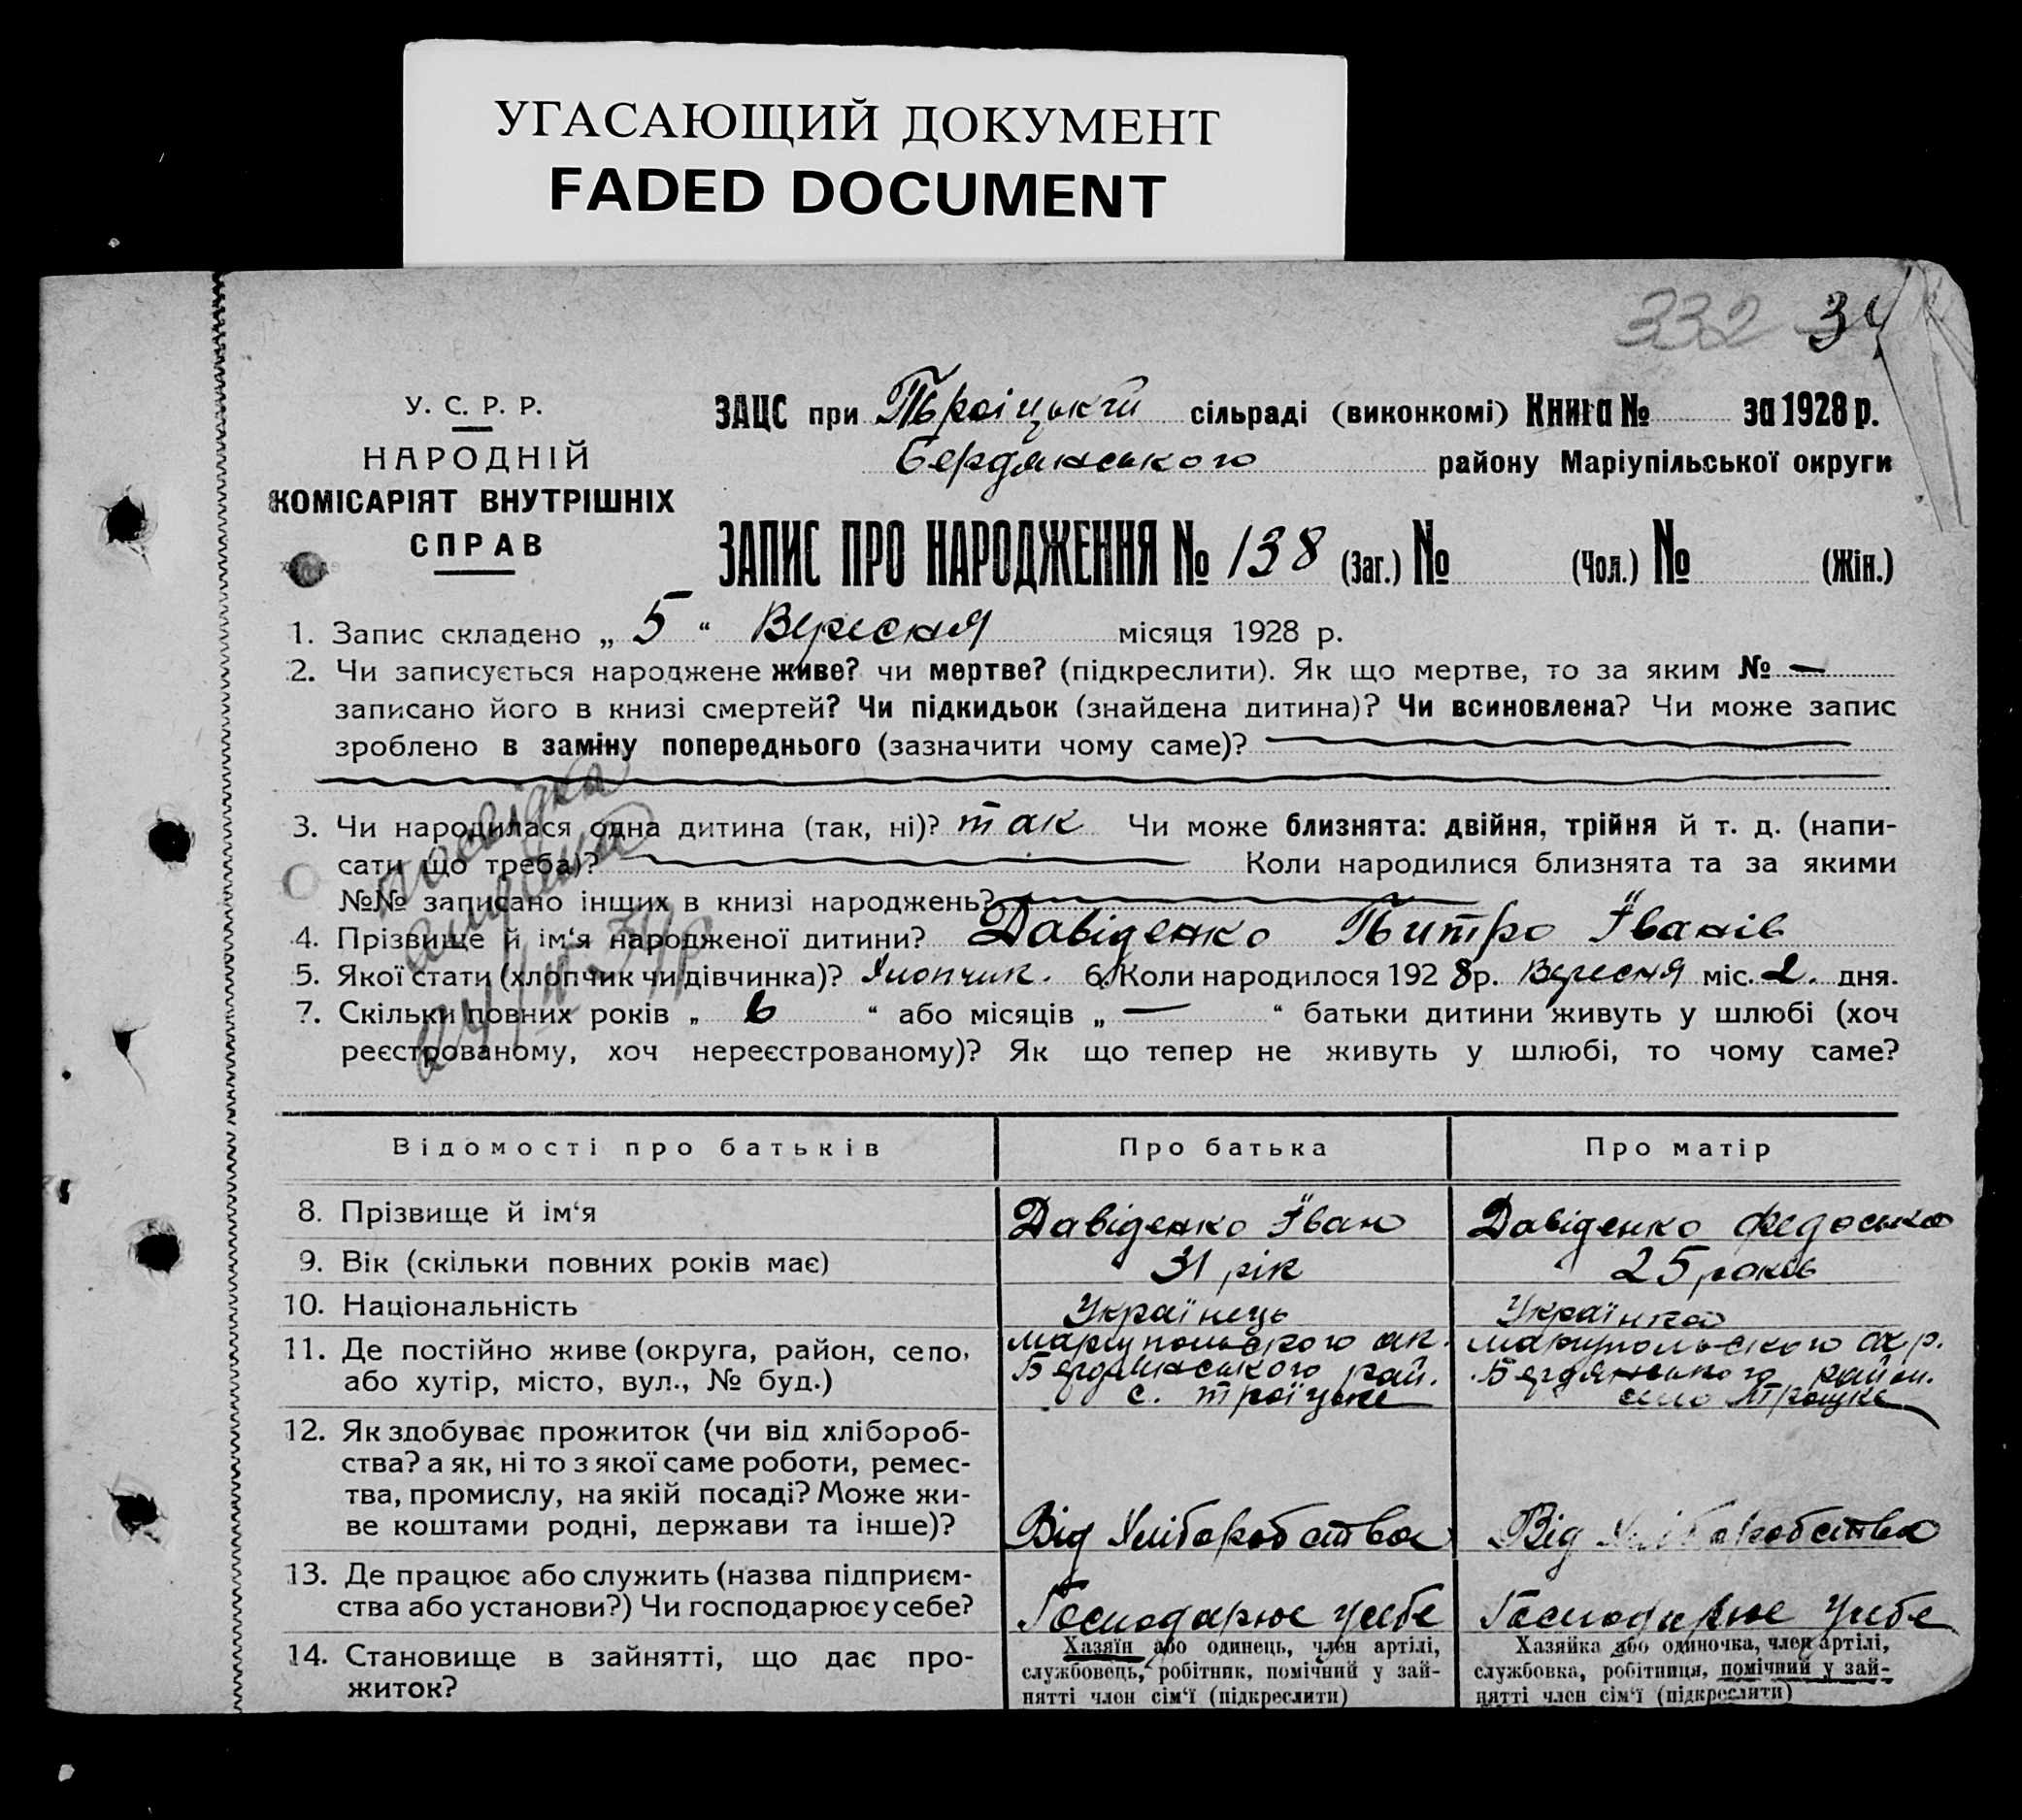 УГАСАЮЩИЙ ДОКУМЕНТ
FADED DOCUMENT
332 34
У. С. Р. Р.
НАРОДНІЙ
КОМІСАРІЯТ ВНУТРІШНІХ
СПРАВ
ЗАЦС при Троіцькій сільраді (виконкомі) Книга № за 1928 р.
Бердянського району Маріупільської округи
ЗАПИС ПРО НАРОДЖЕННЯ № 138 (Заг.) № (Чол.) № (Жін.)
1. Запис складено „ 5 “ Вересня місяця 1928 р.
2. Чи записується народжене живе? чи мертве? (підкреслити). Як що мертве, то за яким № —
записано його в книзі смертей? Чи підкидьок (знайдена дитина)? Чи всиновлена? Чи може запис
зроблено в заміну попереднього (зазначити чому саме)?
3. Чи народилася одна дитина (так, ні)? так Чи може близнята: двійня, трійня й т. д. (напи-
сати що треба)? Коли народилися близнята та за якими
№№ записано інших в книзі народжень?
4. Прізвище й ім‘я народженої дитини? Давіденко Питро Іванів
5. Якої стати (хлопчик чи дівчинка)? Хлопчик. 6. Коли народилося 1928 р. Вересня міс. 2. дня.
7. Скільки повних років „ 6 “ або місяців „ — “ батьки дитини живуть у шлюбі (хоч
реєстрованому, хоч нереєстрованому)? Як що тепер не живуть у шлюбі, то чому саме?
Відомості про батьків Про батька Про матір
8. Прізвище й ім‘я Давіденко Іван Давіденко Федоська
9. Вік (скільки повних років має) 31 рік 25 років
10. Національність Українець Українка
11. Де постійно живе (округа, район, село, Маріупольского ок. Маріупольского окр.
або хутір, місто, вул., № буд.) Бердянського рай. Бердянського район.
с. Троїцке село Троцке
12. Як здобуває прожиток (чи від хлібороб-
ства? а як, ні то з якої саме роботи, ремес-
тва, промислу, на якій посаді? Може жи-
ве коштами родні, держави та інше)? Від Хліборобства Від Хліборобства
13. Де працює або служить (назва підприєм-
ства або установи?) Чи господарює у себе? Господарює усебе Господарює усебе
14. Становище в зайнятті, що дає про-
житок?
Хазяїн або одинець, член артілі,
службовець, робітник, помічний у зай-
нятті член сім‘ї (підкреслити)
Хазяйка або одиночка, член артілі,
службовка, робітниця, помічний у зай-
нятті член сім‘ї (підкреслити)